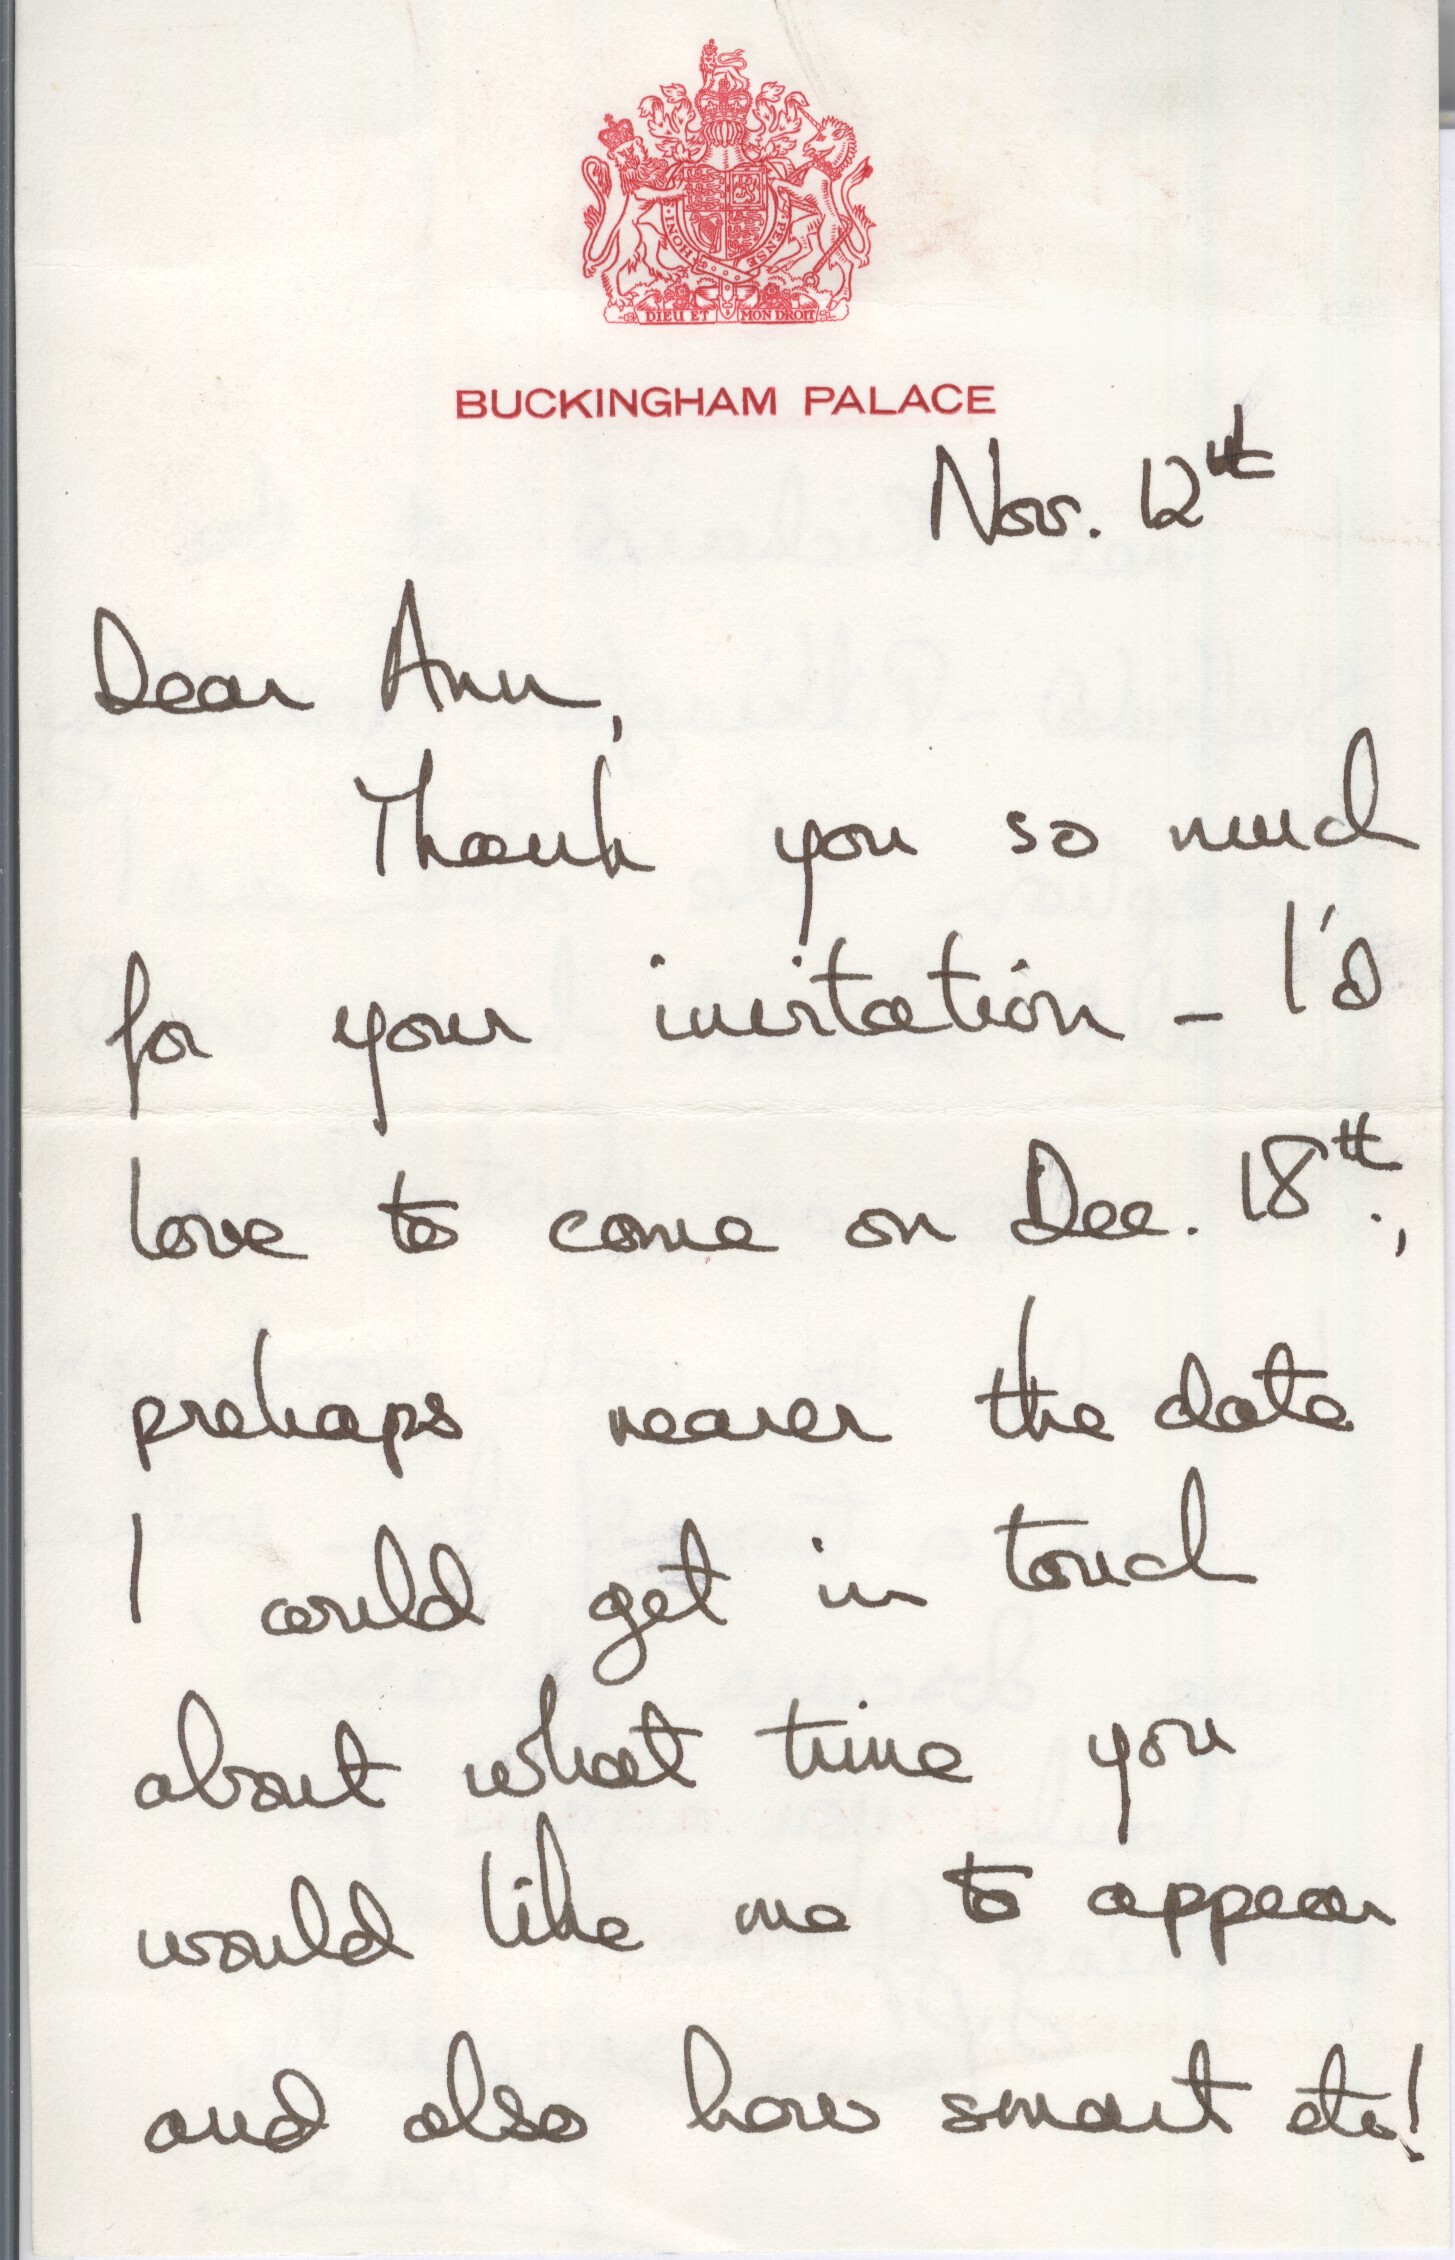 HONI
PENSE
DIEU ET MON DROIT
BUCKINGHAM PALACE
Nov. 12th
Dear Ann,
Thank you so much
for your invitation – I'd
love to come on Dec. 18th.,
prehaps nearer the date
I could get in touch
about what time you
would like me to appear
and also how smart etc!